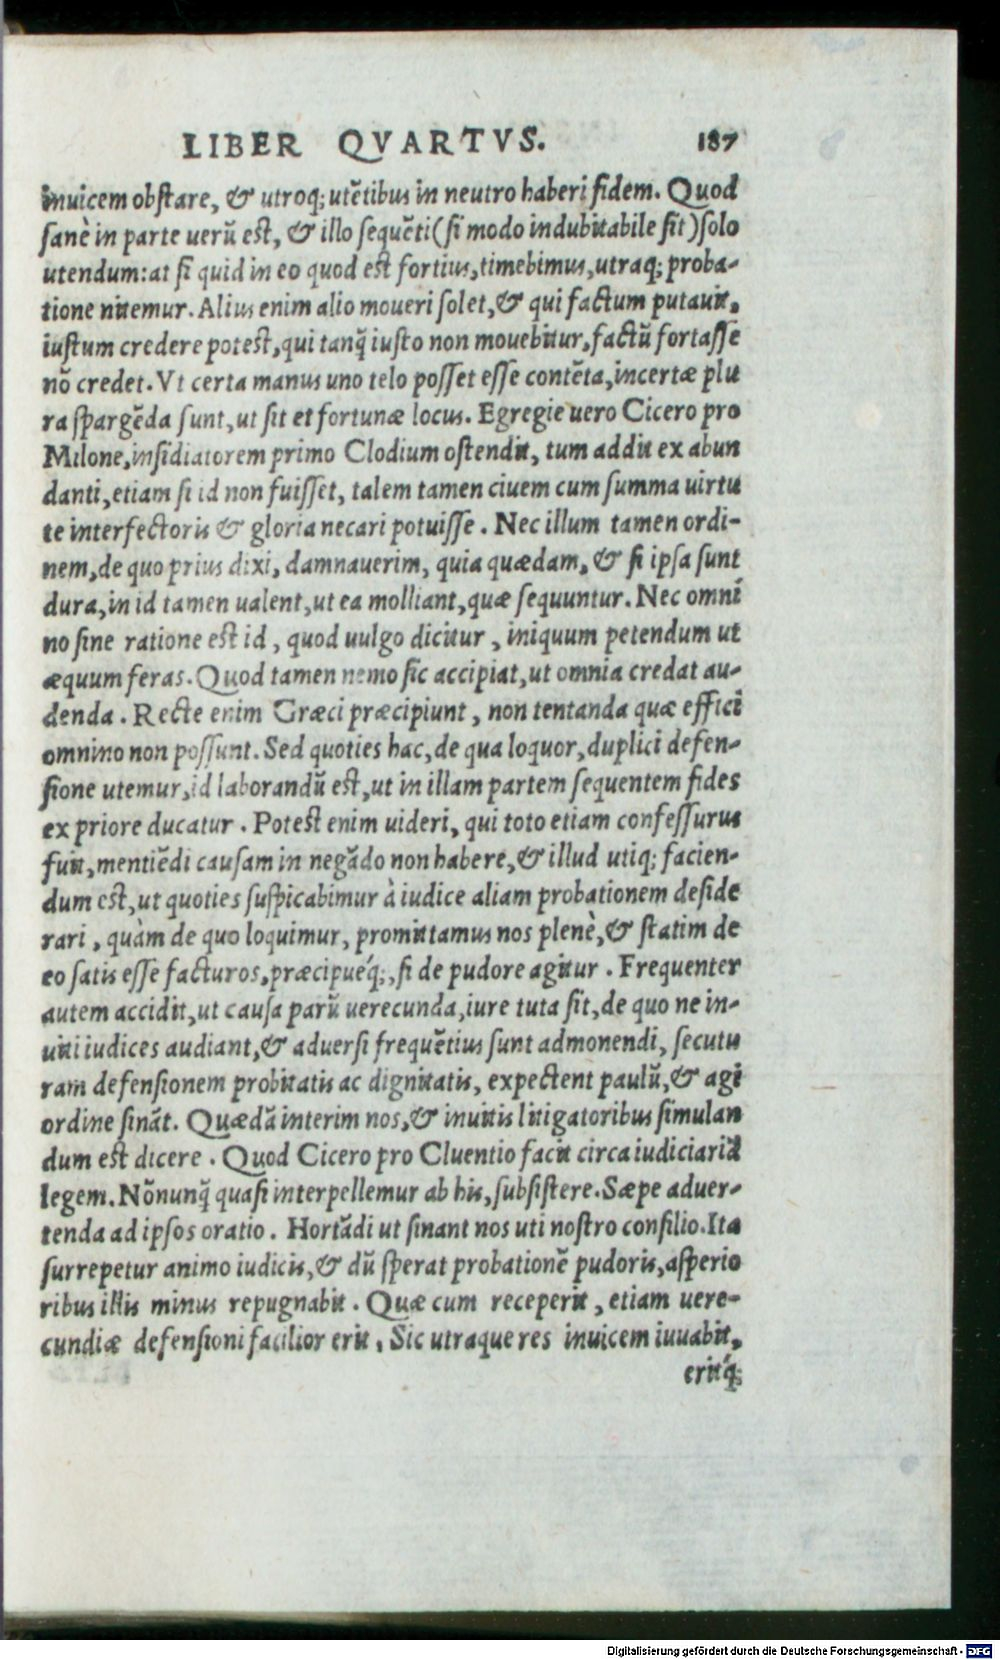 LIBER QVARTVS. 187
inuicem obstare, & utroq; utētibus in neutro haberi fidem. Quod
sanè in parte uerū est, & illo sequēti (si modo indubitabile sit) solo
utendum: at si quid in eo quod est fortius, timebimus, utraq; proba-
tione nitemur. Alius enim alio moueri solet, & qui factum putauit,
iustum credere potest, qui tanq̃ iusto non mouebitur, factū fortasse
nō credet. Vt certa manus uno telo posset esse contēta, incertæ plu
ra spargēda sunt, ut sit et fortunæ locus. Egregie uero Cicero pro
Milone, insidiatorem primo Clodium ostendit, tum addit ex abun
danti, etiam si id non fuisset, talem tamen ciuem cum summa uirtu
te interfectoris & gloria necari potuisse. Nec illum tamen ordi-
nem, de quo prius dixi, damnauerim, quia quædam, & si ipsa sunt
dura, in id tamen ualent, ut ea molliant, quæ sequuntur. Nec omni
no sine ratione est id, quod uulgo dicitur, iniquum petendum ut
æquum feras. Quod tamen nemo sic accipiat, ut omnia credat au-
denda. Recte enim Græci præcipiunt, non tentanda quæ effici
omnino non possunt. Sed quoties hac, de qua loquor, duplici defen-
sione utemur, id laborandū est, ut in illam partem sequentem fides
ex priore ducatur. Potest enim uideri, qui toto etiam confessurus
fuit, mentiēdi causam in negādo non habere, & illud utiq; facien-
dum est, ut quoties suspicabimur à iudice aliam probationem deside
rari, quàm de quo loquimur, promittamus nos plenè, & statim de
eo satis esse facturos, præcipueq́;, si de pudore agitur. Frequenter
autem accidit, ut causa parū uerecunda, iure tuta sit, de quo ne in-
uiti iudices audiant, & aduersi frequētius sunt admonendi, secutu
ram defensionem probitatis ac dignitatis, expectent paulū, & agi
ordine sināt. Quædā interim nos, & inuitis litigatoribus simulan
dum est dicere. Quod Cicero pro Cluentio facit circa iudiciariā
legem. Nōnunq̃ quasi interpellemur ab his, subsistere. Sæpe aduer-
tenda ad ipsos oratio. Hortādi ut sinant nos uti nostro consilio. Ita
surrepetur animo iudicis, & dū sperat probationē pudoris, asperio
ribus illis minus repugnabit. Quæ cum receperit, etiam uere-
cundiæ defensioni facilior erit, Sic utraque res inuicem iuuabit,
eritq́;
Digitalisierung gefördert durch die Deutsche Forschungsgemeinschaft - DFG